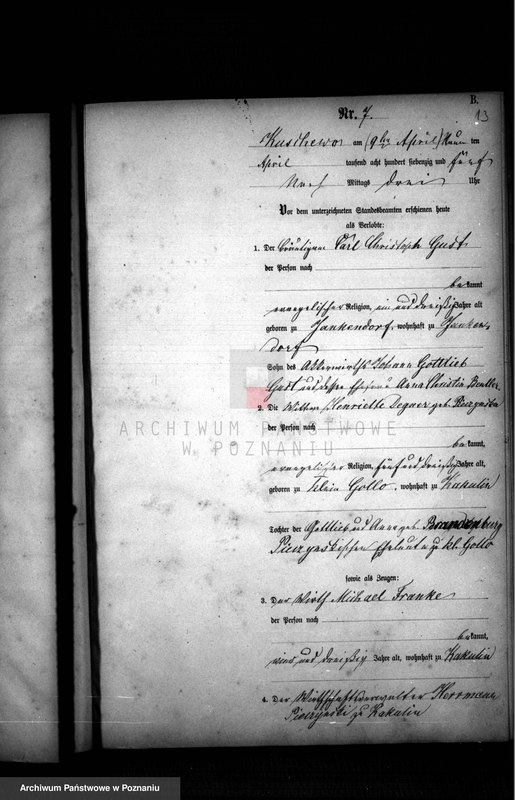 B.
13
Nr. 7.
Kuschewo am (9ten April) Neun ten
April tausend acht hundert siebenzig und fünf
Nach Mittags drei Uhr
Vor dem unterzeichneten Standesbeamten erschienen heute
als Verlobte:
1. Der Bräutigam Carl Christoph Gust
der Person nach
bekannt
evangelischer Religion, ein und dreißig Jahre alt
geboren zu Jankendorf, wohnhaft zu Janken-
dorf
Sohn des Ackerwirths Johann Gottlieb
Gust und dessen Ehefrau Anna Christin
2. Die Wittwe Henriette Degner geb.
der Person nach
bekannt,
evangelischer Religion, fünf und dreißig Jahre alt,
geboren zu Klein Gollo, wohnhaft zu Kakulin
Tochter der Gottlieb und Anna geb. Brandenburg
Eheleute zu kl. Gollo
sowie als Zeugen:
3. Der Wirth Michael Franke
der Person nach
bekannt,
eins und dreißig Jahre alt, wohnhaft zu Kakulin
4. Der Wirthschaftsverwalter Herrmann
zu Kakulin
ARCHIWUM PAŃSTWOWE
W POZNANIU
Archiwum Państwowe w Poznaniu